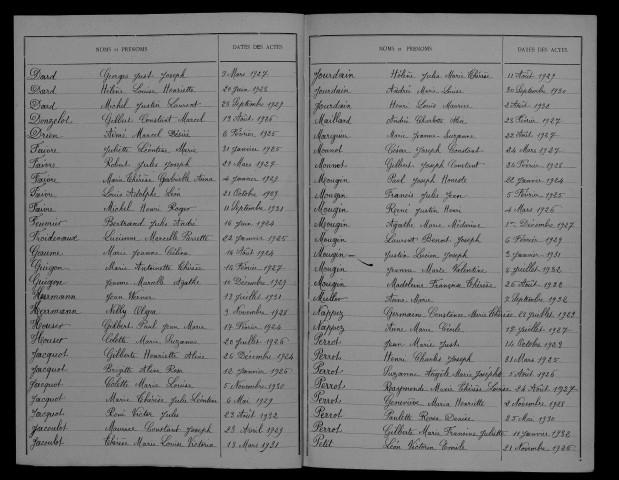 NOMS et PRÉNOMS DATES DES ACTES
Dard Georges Just Joseph 9 Mars 1927
Dard Hélène Louise Henriette 20 Juin 1928
Dard Michel Justin Laurent 28 Septembre 1929
Donzelot Gilbert Constant Marcel 19 Août 1926
Drien Aimé Marcel Désiré 6 Février 1925
Faivre Juliette Léontine Marie 31 Janvier 1925
Faivre Robert Jules Joseph 21 Mars 1927
Faivre Marie Thérèse Gabrielle Anna 4 Janvier 1929
Faivre Louis Adolphe Léon 21 Octobre 1929
Faivre Michel Henri Roger 11 Septembre 1931
Fournier Bertrand Jules André 16 Juin 1924
Froidevaux Lucienne Marcelle Pierrette 22 Janvier 1925
Gaume Marie Jeanne 14 Août 1924
Guigon Marie Antoinette Thérèse 14 Février 1927
Guigon Jeanne Marcelle Agathe 10 Décembre 1929
Herrmann Jean Werner 13 Juillet 1931
Herrmann Nelly Olga 9 Novembre 1928
Houser Gilbert Paul Jean Marie 17 Février 1924
Houser Colette Marie Suzanne 20 Juillet 1926
Jacquot Gilberte Henriette Aline 26 Décembre 1924
Jacquot Brigitte Aline Rose 12 Janvier 1926
Jacquot Colette Marie Louise 5 Novembre 1930
Jacquot Marie Thérèse Julie Léontine 6 Mai 1929
Jacquot René Victor Jules 23 Août 1932
Jacoulot Maurice Constant Joseph 23 Avril 1929
Jacoulot Thérèse Marie Louise Victoria 13 Mars 1931
NOMS et PRÉNOMS DATES DES ACTES
Jourdain Hélène Julie Marie Thérèse 11 Août 1929
Jourdain André Marie Louis 30 Septembre 1930
Jourdain Henri Louis Maurice 2 Août 1932
Maillard André Charles 23 Février 1927
Marguier Marie Jeanne Suzanne 22 Août 1927
Monnot César Joseph Constant 24 Mars 1927
Monnot Gilbert Joseph Constant 24 Février 1928
Mougin Paul Joseph 22 Janvier 1924
Mougin Francis Jules Jean 5 Février 1925
Mougin René Justin Henri 4 Mars 1926
Mougin Agathe Marie 1er Décembre 1927
Mougin Laurent Benoit Joseph 6 Février 1929
Mougin Justin Lucien Joseph 2 Janvier 1931
Mougin Jeanne Marie Valentine 2 Juillet 1932
Mougin Madeleine Françoise Thérèse 26 Août 1932
Muller Anne Marie 2 Septembre 1932
Nappez Germaine Constance Marie Thérèse 22 Juillet 1923
Nappez Anne Marie Cécile 12 Juillet 1927
Perrot Jean Marie Just 14 Octobre 1923
Perrot Henri Charles Joseph 21 Mars 1925
Perrot Suzanne Angèle Marie Josephte 5 Août 1926
Perrot Raymonde Marie Thérèse Louise 24 Août 1927
Perrot Geneviève Maria Henriette 2 Novembre 1928
Perrot Paulette Rose Denise 25 Mai 1930
Perrot Gilberte Marie Francine Juliette 11 Janvier 1932
Petit Léon Victorin Emile 21 Novembre 1926